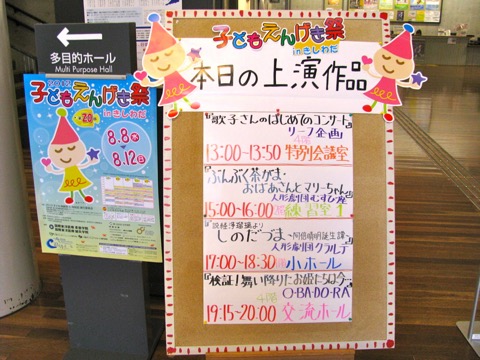 多目的ホール
Multi Purpose Hall
2012
子どもえんげき祭
inきしわだ
第20回
8.8水
8.12日
子どもえんげき祭
inきしわだ
本日の上演作品
『歌子さんのはじめてのコンサート』
リーフ企画
13:00-13:50 4階 特別会議室
『ぶんぶく茶がま・
おばあさんとマリーちゃん』
人形劇団むすび座
15:00-16:00 練習室1
『説経浄瑠璃より
しのだづま -阿倍晴明誕生譚-』
人形劇団クラルテ
17:00-18:30 小ホール
『検証!舞い降りたお姫たちは今…』
4階 O・BA・DO・RA
19:15-20:00 交流ホール